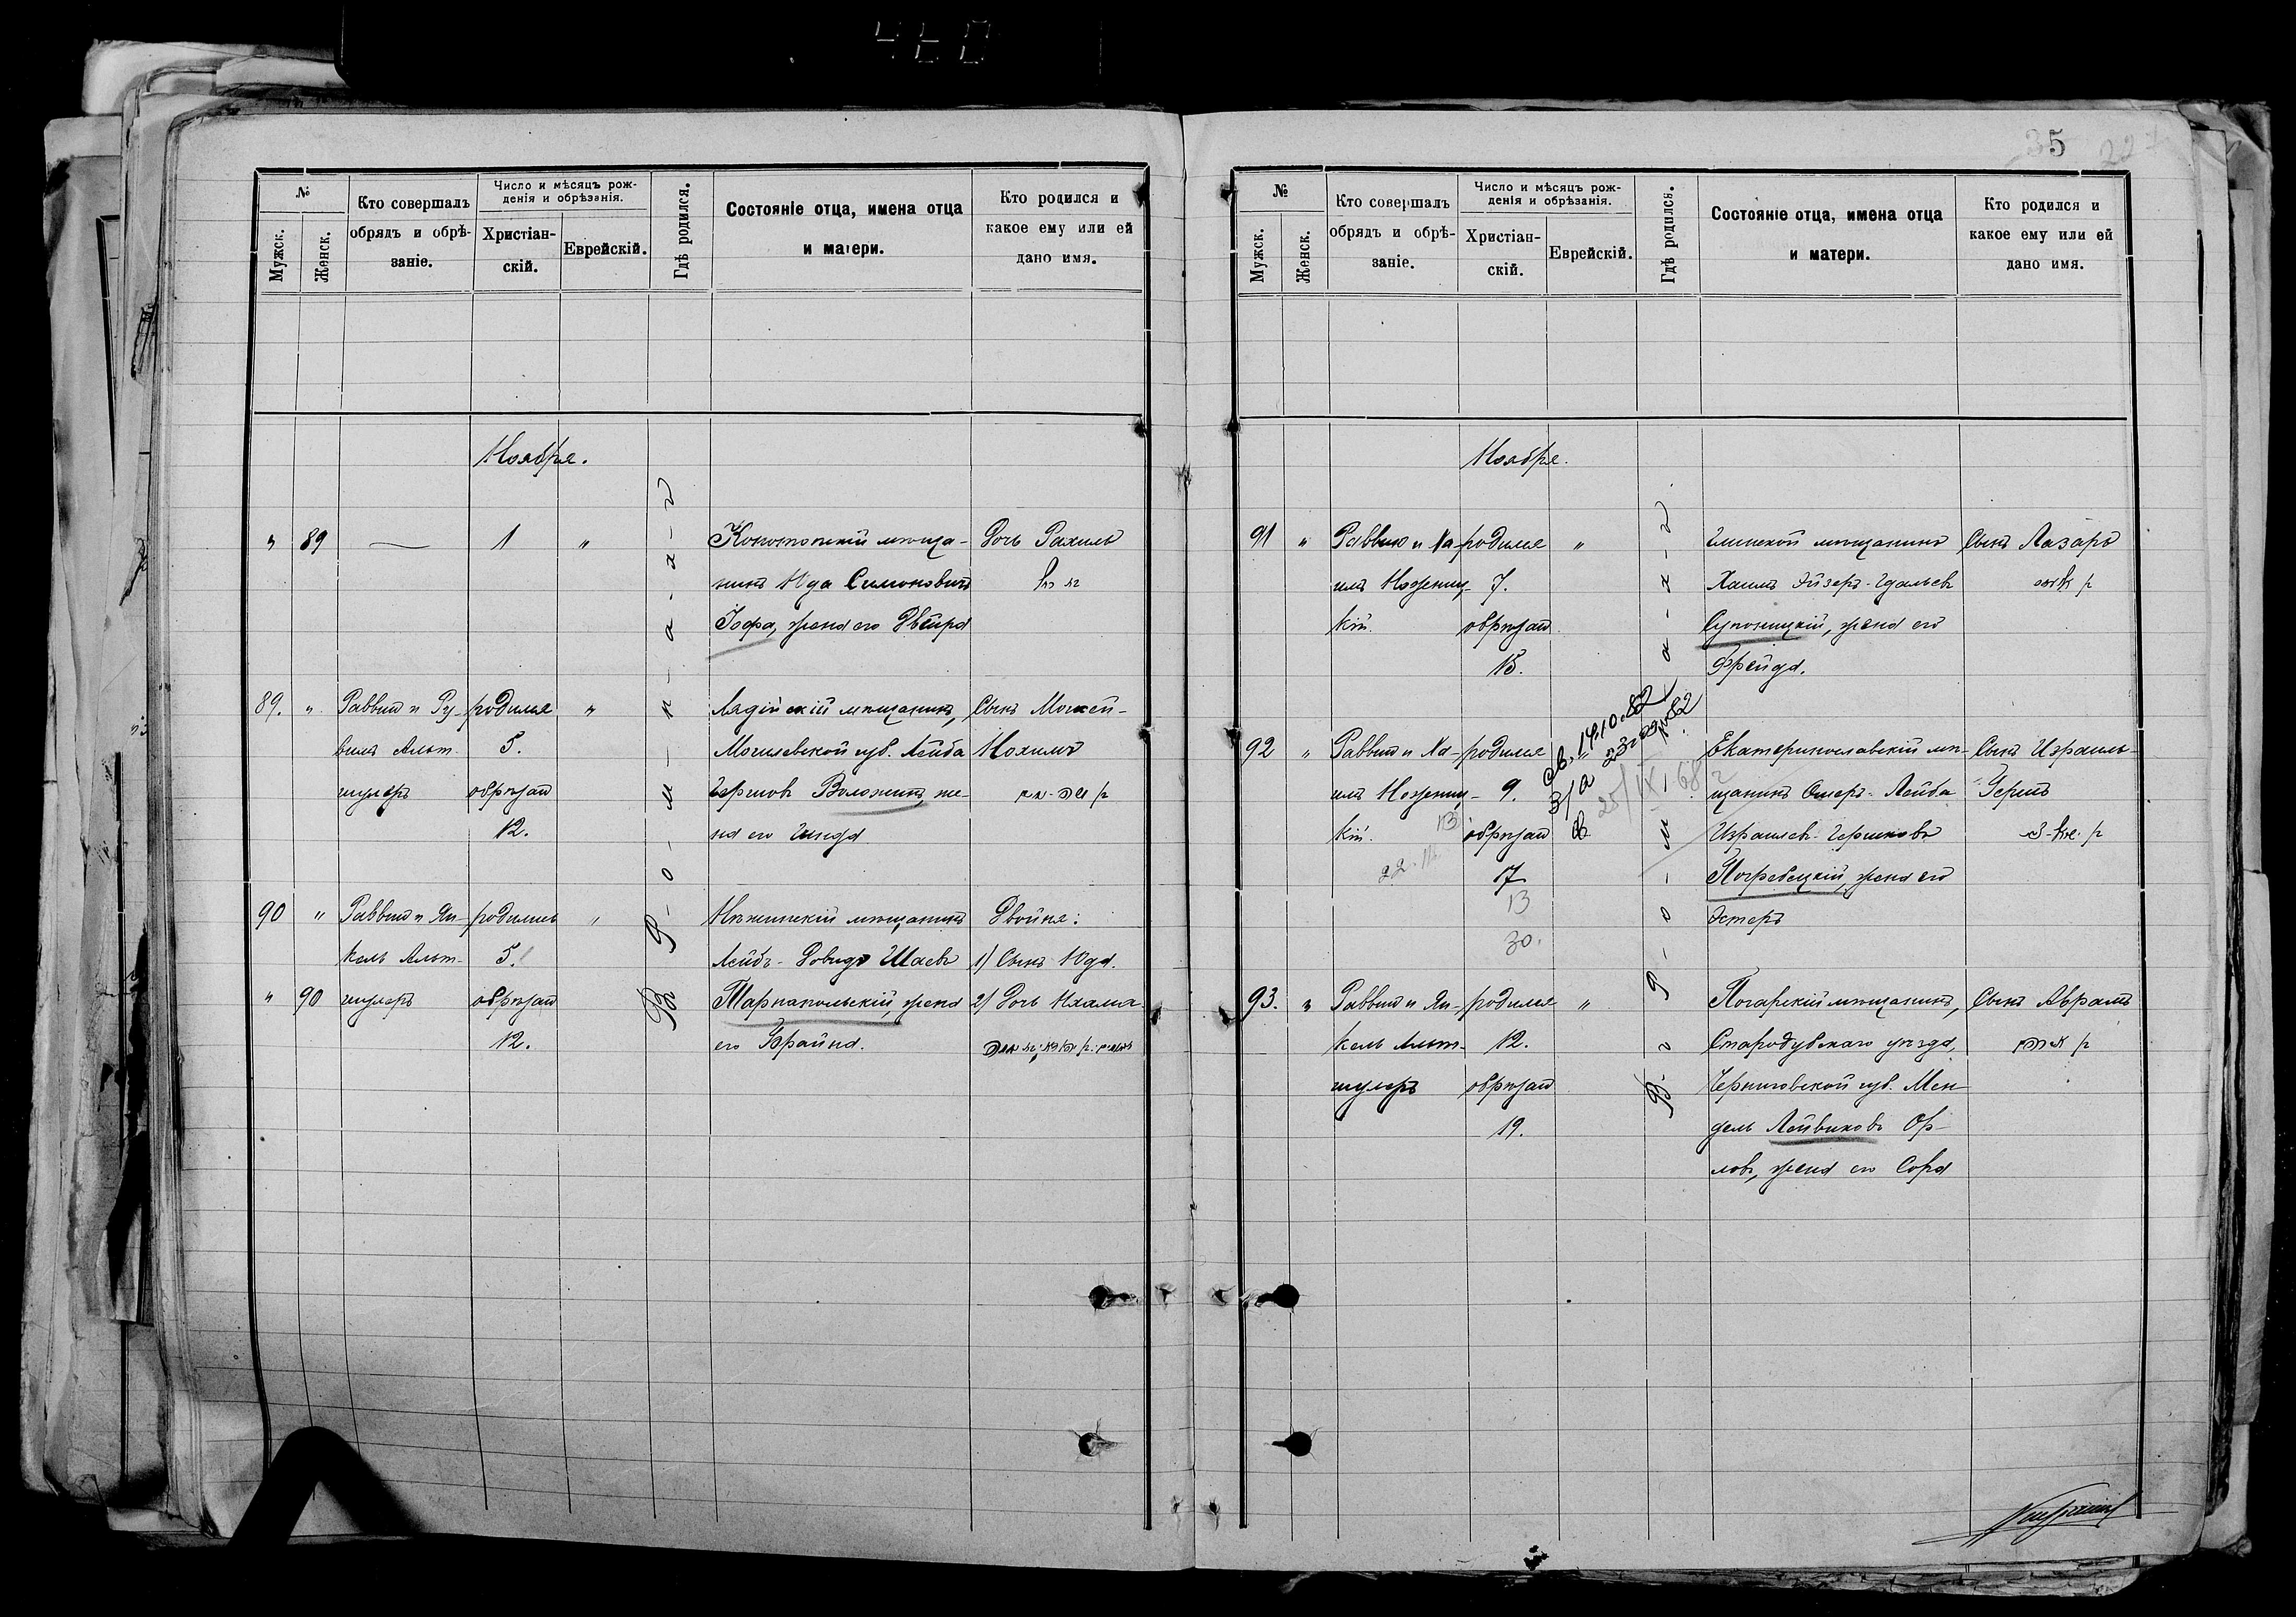 35
227
№
Мужск.
Женск.
Кто совершалъ
обрядъ и обрѣ-
заніе.
Число и мѣсяцъ рож-
денія и обрѣзанія.
Христіан-
скій.
Еврейскій.
Гдѣ родился.
Состояніе отца, имена отца
и матери.
Кто родился и
какое ему или ей
дано имя.
Ноября.
В г. Р-о-м-н-а-х-ъ
" 89 — 1 "
Конотопскій мѣща-
нинъ Юда Симоновичъ
Іофа, жена его Двейра
Дочь Рахиль
89. "
Раввин и Ру-
вимъ Альт-
шулеръ
родился
5.
обрѣзан
12.
"
Лядійскій мѣщанинъ,
Могилевской губ. Лейба
Гершовъ Воложинъ, же-
на его Гинда
Сынъ Мовсей-
Нохимъ
90 "
" 90
Раввин и Ян-
кель Альт-
шулеръ
родились
5.
обрѣзан
12.
"
Нѣжинскій мѣщанинъ
Лейбъ-Довидъ Шаевъ
Тарнапольскій, жена
его Брайна.
Двойня:
1) Сынъ Юда.
2) Дочь Нхама
№
Мужск.
Женск.
Кто совершалъ
обрядъ и обрѣ-
заніе.
Число и мѣсяцъ рож-
денія и обрѣзанія.
Христіан-
скій.
Еврейскій.
Гдѣ родился.
Состояніе отца, имена отца
и матери.
Кто родился и
какое ему или ей
дано имя.
Ноября.
В г. Р-о-м-н-а-х-ъ
91 "
Раввин и
кій.
родился
7.
обрѣзан
15.
"
Глинскій мѣщанинъ
Хаимъ Эйзеръ-Гдальевъ
Супоницкій, жена его
Фрейда.
Сынъ Лазарь
92 "
Раввин и
кій.
родился
9.
обрѣзан
17
13
30.
св. 14.10.82
25/IX 68 г
Екатеринославскій мѣ-
щанинъ Ошеръ-Лейба
Израилев-Гершковъ
Погребецкій, жена его
Эстеръ
Сынъ Израиль-
Гершъ
93. "
Раввин и Ян-
кель Альт-
шулеръ
родился
12.
обрѣзан
19.
"
Погарскій мѣщанинъ,
Стародубскаго уѣзда,
Черниговской губ. Мен-
дель Лейвиковъ Ор-
ловъ, жена его Сора
Сынъ Абрамъ